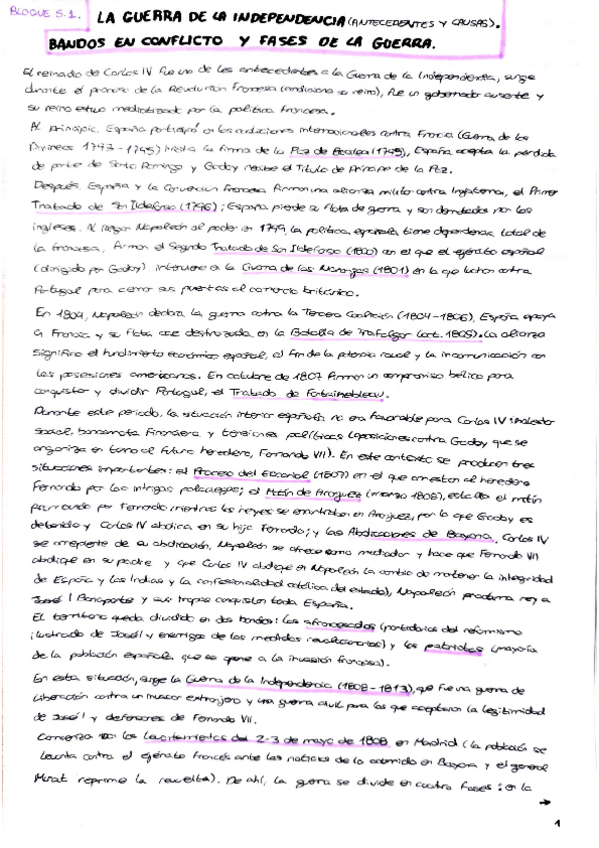 BLOQUE 5.1.
LA GUERRA DE LA INDEPENDENCIA (ANTECEDENTES Y CAUSAS).
BANDOS EN CONFLICTO Y FASES DE LA GUERRA.
El reinado de Carlos IV fue uno de los antecedentes a la Guerra de la Independencia, surge
durante el proceso de la Revolución Francesa (condiciona su reino), fue un gobernador ausente y
su reino estuvo mediatizado por la política francesa.
Al principio, España participó en las coaliciones internacionales contra Francia (Guerra de los
Pirineos 1793-1795) hasta la firma de la Paz de Basilea (1795), España acepta la pérdida
de parte de Santo Domingo y Godoy recibe el Título de Príncipe de la Paz.
Después, España y la Convención Francesa firman una alianza militar contra Inglaterra, el Primer
Tratado de San Ildefonso (1796); España pierde su flota de guerra y son derrotados por los
ingleses. Al llegar Napoleón al poder en 1799 la política española tiene dependencia total de
la francesa, firman el Segundo Tratado de San Ildefonso (1800) en el que el ejército español
(dirigido por Godoy) interviene en la Guerra de las Naranjas (1801) en la que luchan contra
Portugal para cerrar sus puertas al comercio británico.
En 1804, Napoleón declara la guerra contra la Tercera Coalición (1804-1806), España apoya
a Francia y su flota cae destrozada en la Batalla de Trafalgar (oct. 1805). La alianza
significó el hundimiento económico español, el fin de la potencia naval y la incomunicación con
las posesiones americanas. En octubre de 1807 firman un compromiso bélico para
conquistar y dividir Portugal, el Tratado de Fontainebleau.
Durante este período, la situación interior española no era favorable para Carlos IV: malestar
social, bancarrota financiera y tensiones políticas (oposiciones contra Godoy que se
organiza en torno al futuro heredero, Fernando VII). En este contexto se producen tres
situaciones importantes: el Proceso del Escorial (1807) en el que arrestan al heredero
Fernando por las intrigas palaciegas; el Motín de Aranjuez (marzo 1808), estalla el motín
por Fernando mientras los reyes se encontraban en Aranjuez, por lo que Godoy es
detenido y Carlos IV abdica en su hijo Fernando; y las Abdicaciones de Bayona, Carlos IV
se arrepiente de su abdicación, Napoleón se ofrece como mediador y hace que Fernando VII
abdique en su padre y que Carlos IV abdique en Napoleón (a cambio de mantener la integridad
de España y las Indias y la confesionalidad católica del estado), Napoleón proclama rey a
José I Bonaparte y sus tropas conquistan toda España.
El territorio queda dividido en dos bandos: los afrancesados (partidarios del reformismo
ilustrado de José I y enemigos de las medidas revolucionarias) y los patriotas (mayoría
de la población española que se opone a la invasión francesa).
En esta situación, surge la Guerra de la Independencia (1808-1813), que fue una guerra de
liberación contra un invasor extranjero y una guerra civil para los que aceptaron la legitimidad
de José I y defensores de Fernando VII.
Comienza con los levantamientos del 2-3 de mayo de 1808 en Madrid (la población se
levanta contra el ejército francés ante las noticias de lo ocurrido en Bayona y el general
Murat reprime la revuelta). De ahí, la guerra se divide en cuatro fases: en la
→
1